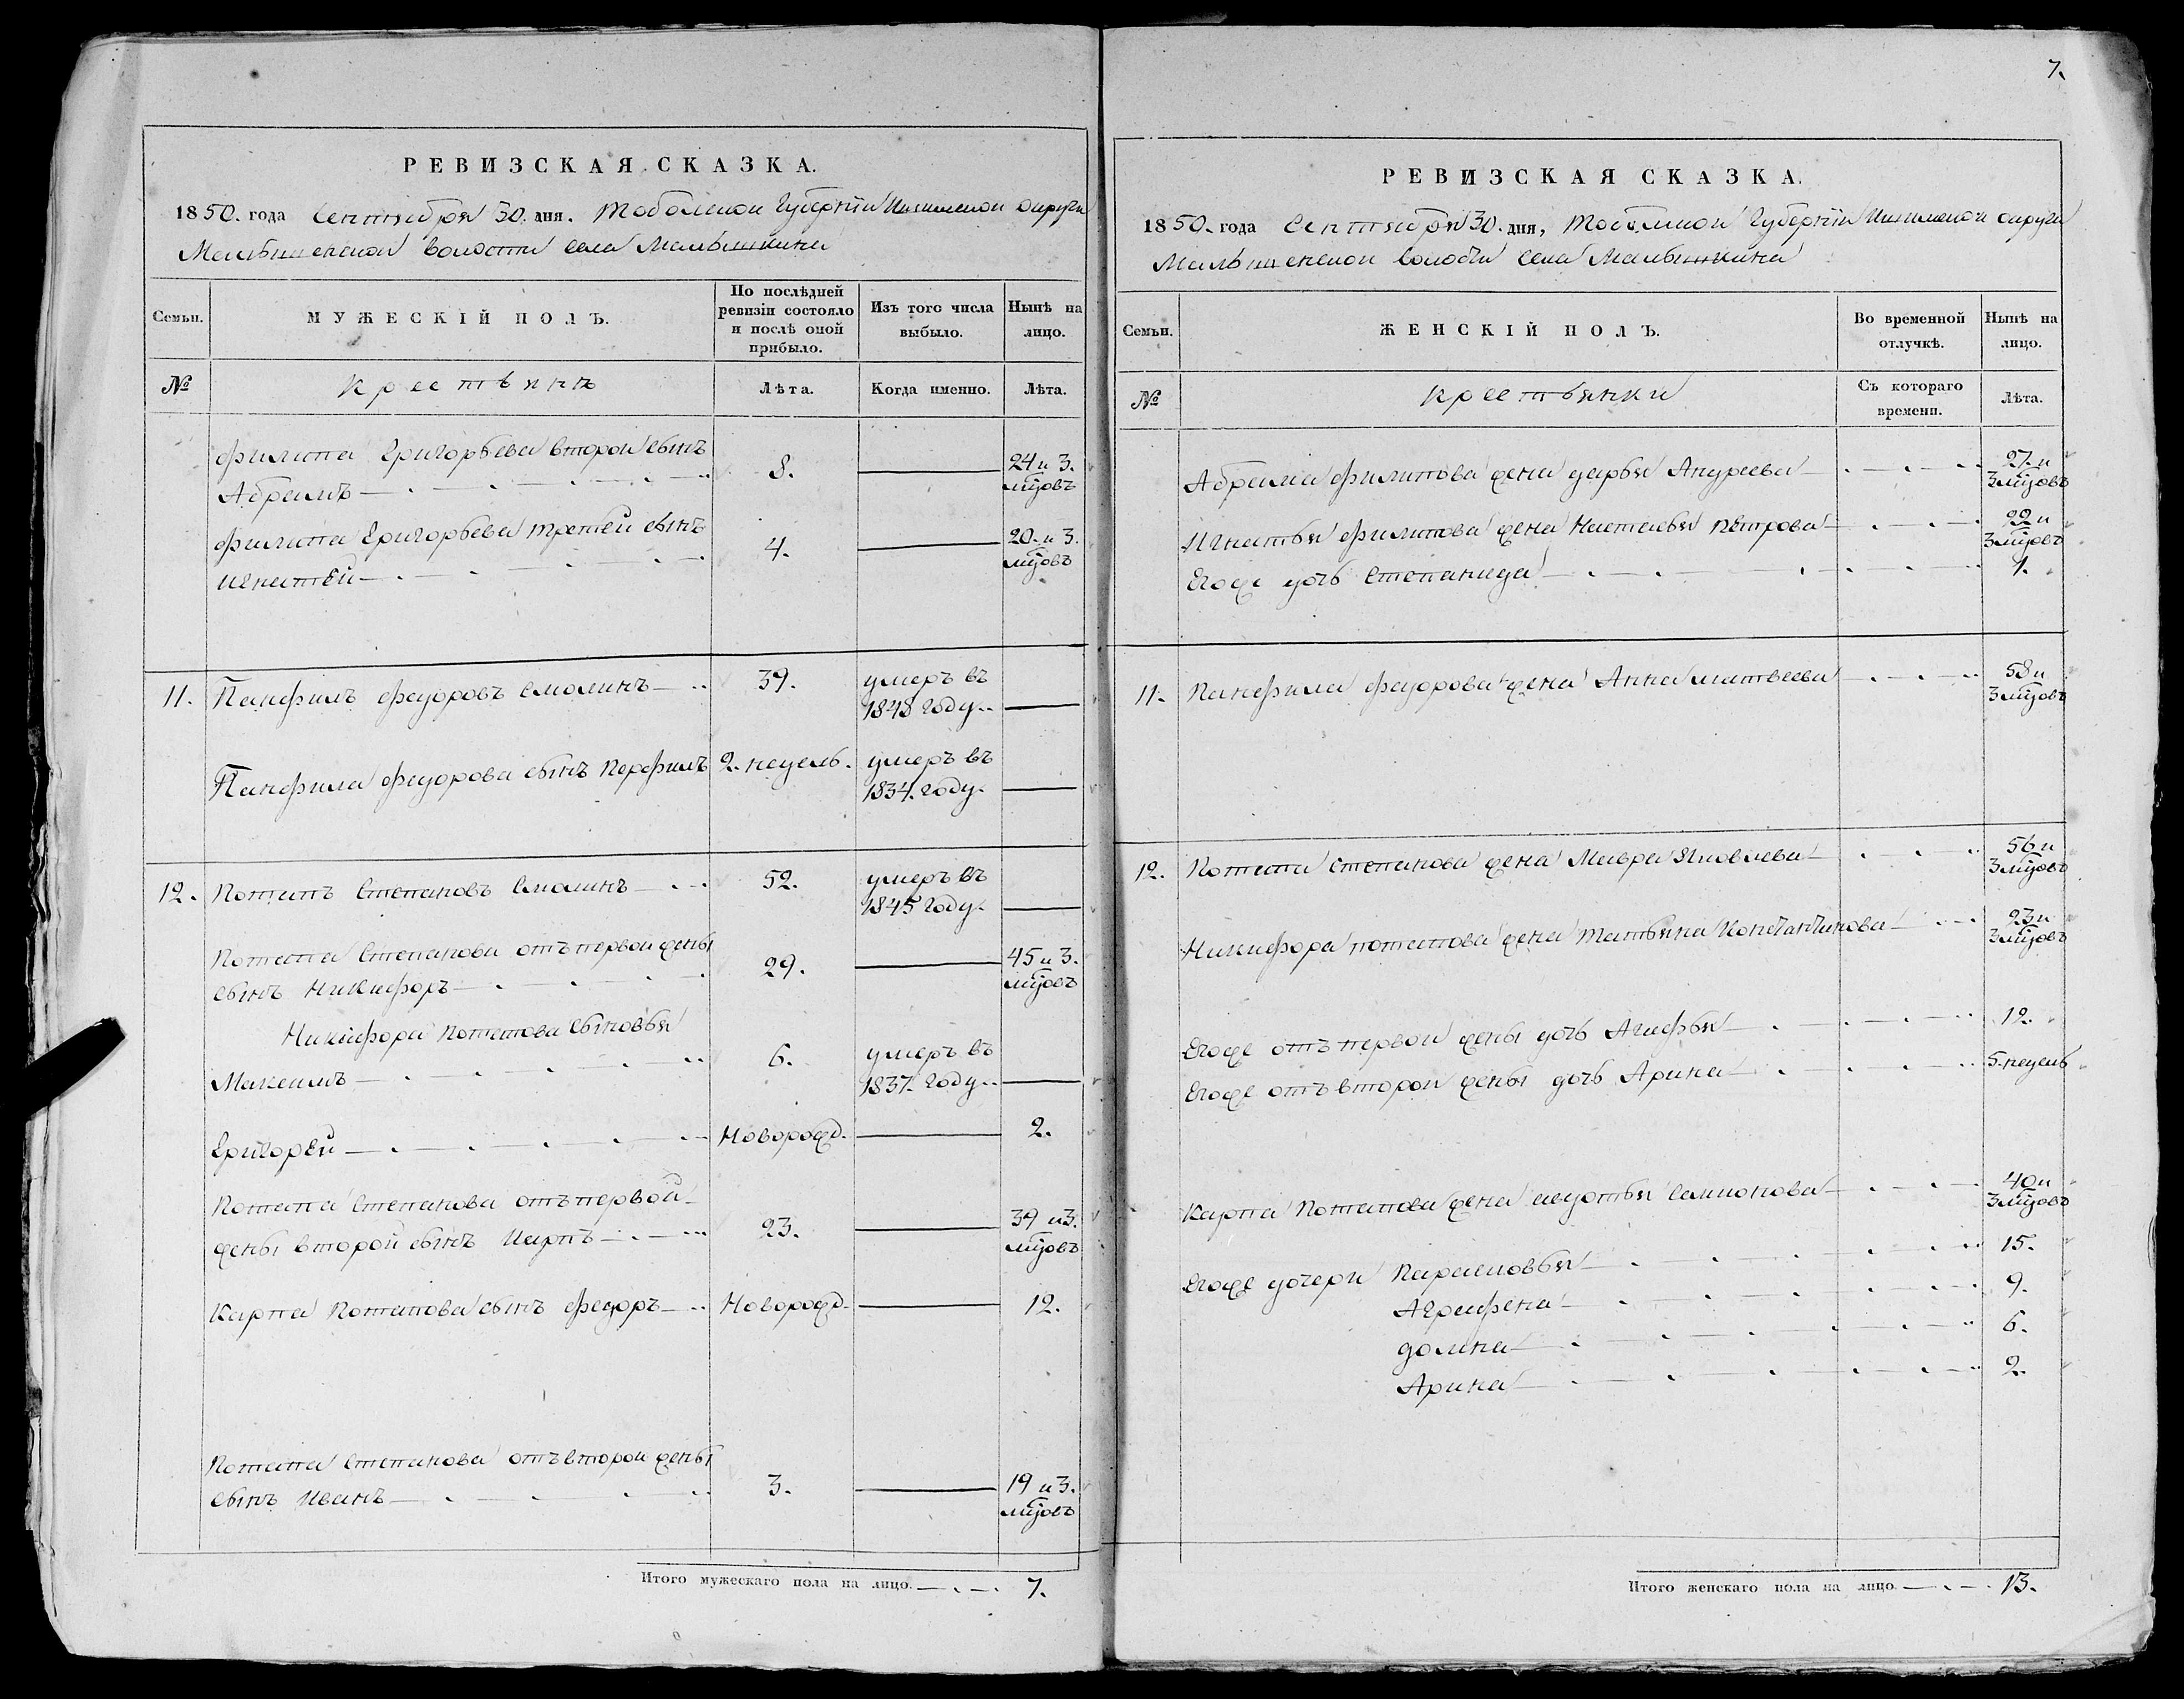 РЕВИЗСКАЯ СКАЗКА.
1850. года Сентября 30. дня. Тобольской Губернiи Ишимской округи
Малышенской волости села Малышкина
Семьи.
МУЖЕСКІЙ ПОЛЪ.
По послѣдней ревизіи состояло и послѣ оной прибыло.
Изъ того числа выбыло.
Нынѣ на лицо.
№
крестьянъ
Лѣта.
Когда именно.
Лѣта.
Филипа Григорьева второй сынъ
Абрамъ 8. 24 и 3. мцовъ
Филипа Григорьева третей сынъ
Игнатей 4. 20. и 3. мцовъ
11. Панфилъ Федоровъ Смолинъ 39. умеръ въ
1848 году
Панфила Федорова сынъ Перфилъ 2. недель. умеръ въ
1834. году
12. Потапъ Степановъ Смолинъ 52. умеръ въ
1845 году
Потапа Степанова отъ первой жены
сынъ Никифоръ 29. 45 и 3. мцовъ
Никифора Потапова сыновья
Максимъ 6. умеръ въ
1837. году
Григорей Новорожд. 2.
Потапа Степанова отъ первой
жены второй сынъ Карпъ 23. 39 и 3. мцовъ
Карпа Потапова сынъ Федоръ Новорожд. 12.
Потапа Степанова отъ второй жены
сынъ Иванъ 3. 19 и 3. мцовъ
Итого мужескаго пола на лицо. 7.
7.
РЕВИЗСКАЯ СКАЗКА.
1850. года Сентября 30. дня, Тобольской Губернiи Ишимской округи
Малышенской волости села Малышкина
Семьи.
ЖЕНСКІЙ ПОЛЪ.
Во временной отлучкѣ.
Нынѣ на лицо.
№
крестьянки
Съ котораго времени.
Лѣта.
Абрама Филипова жена Дарья Андреева 27. и 3 мцовъ
Игнатья Филипова жена Наталья Петрова 22 и 3 мцовъ
Егоже дочь Степанида 1.
11. Панфила Федорова жена Анна Матвеева 58 и 3 мцовъ
12. Потапа Степанова жена Мавра Яковлева 56 и 3 мцовъ
Никифора Потапова жена Татьяна Константинова 23 и 3 мцовъ
Егоже отъ первой жены дочь Агафья 12.
Егоже отъ второй жены дочь Арина 5. недель
Карпа Потапова жена Авдотья Самионова 40 и 3 мцовъ
Егоже дочери Парасковья 15.
Аграфена 9.
Домна 6.
Арина 2.
Итого женскаго пола на лицо 13.